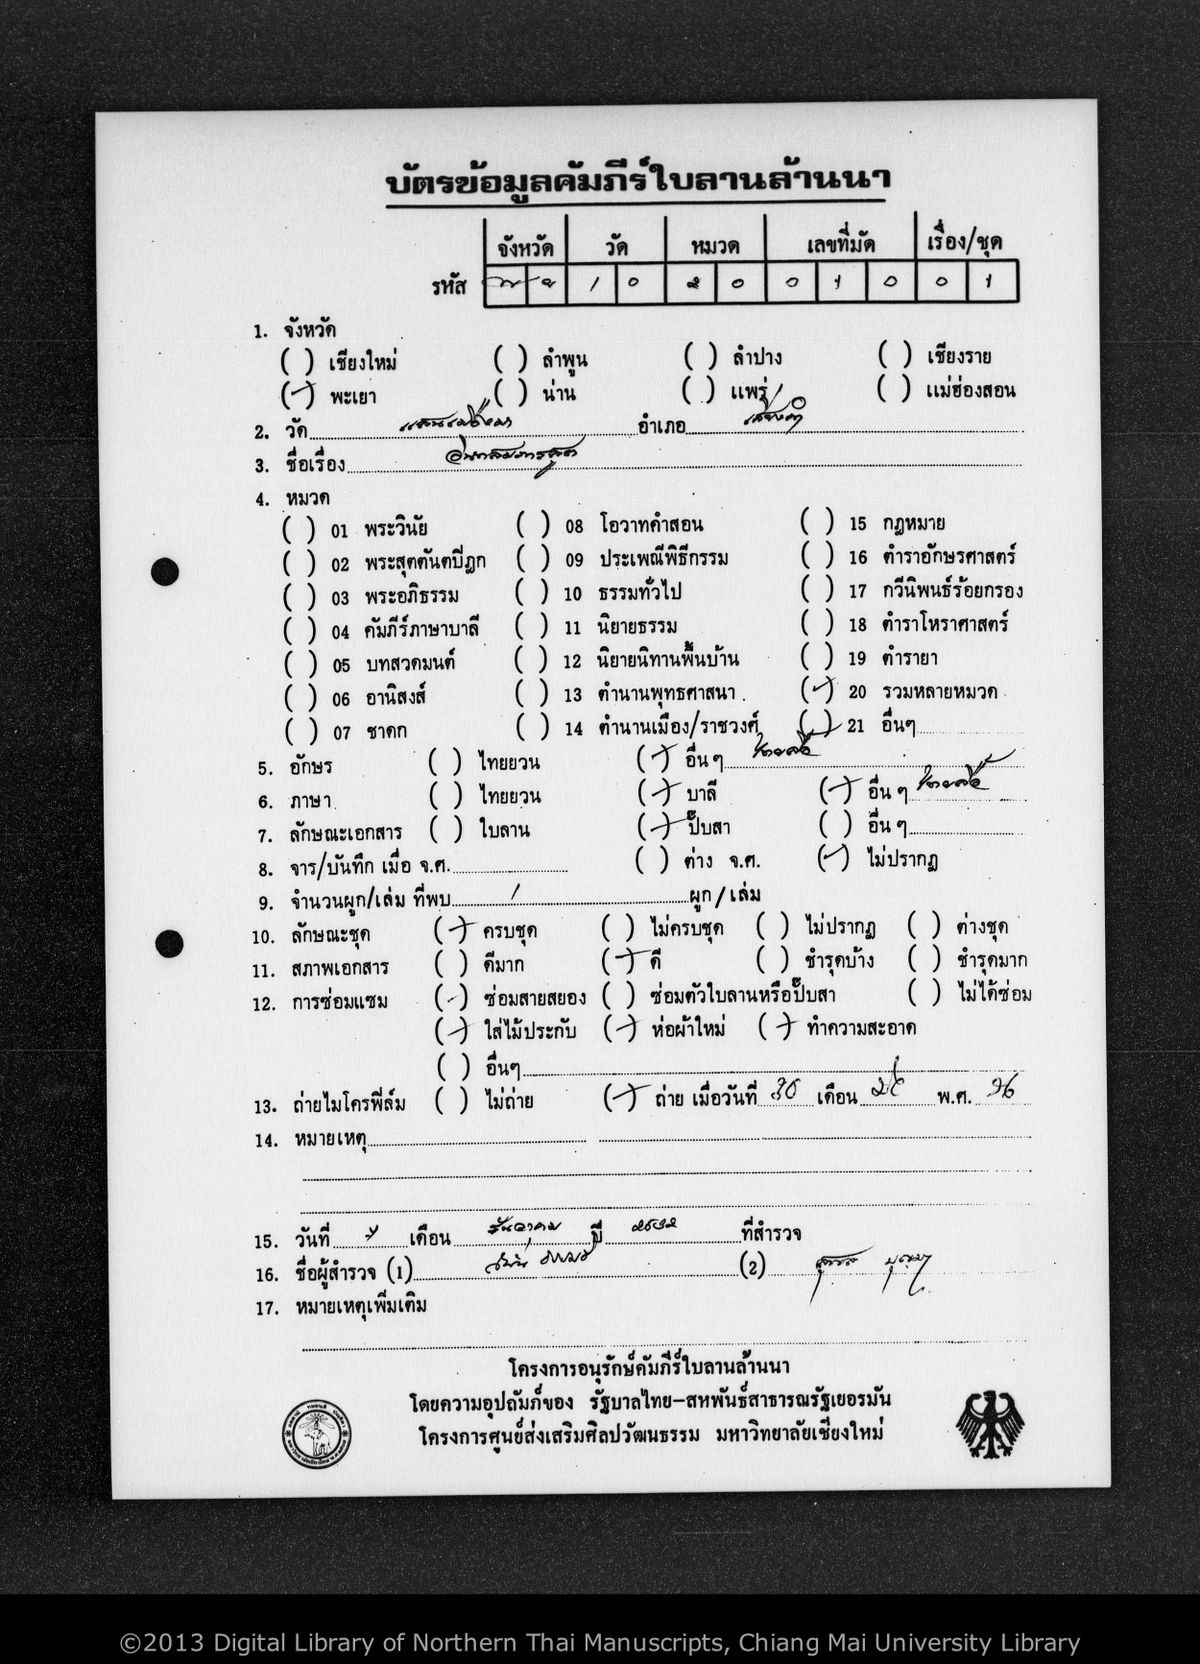 บัตรข้อมูลคัมภีร์ใบลานล้านนา
จังหวัด วัด หมวด เลขที่มัด เรื่อง/ชุด
รหัส พ ย 1 0 2 0 0 1 0 0 1
1. จังหวัด
( ) เชียงใหม่ ( ) ลำพูน ( ) ลำปาง ( ) เชียงราย
(✓) พะเยา ( ) น่าน ( ) แพร่ ( ) แม่ฮ่องสอน
2. วัด แสนเมืองมา อำเภอ เชียงคำ
3. ชื่อเรื่อง
4. หมวด
( ) 01 พระวินัย ( ) 08 โอวาทคำสอน ( ) 15 กฎหมาย
( ) 02 พระสุตตันตปิฎก ( ) 09 ประเพณีพิธีกรรม ( ) 16 ตำราอักษรศาสตร์
( ) 03 พระอภิธรรม ( ) 10 ธรรมทั่วไป ( ) 17 กวีนิพนธ์ร้อยกรอง
( ) 04 คัมภีร์ภาษาบาลี ( ) 11 นิยายธรรม ( ) 18 ตำราโหราศาสตร์
( ) 05 บทสวดมนต์ ( ) 12 นิยายนิทานพื้นบ้าน ( ) 19 ตำรายา
( ) 06 อานิสงส์ ( ) 13 ตำนานพุทธศาสนา ( ✓ ) 20 รวมหลายหมวด
( ) 07 ชาดก ( ) 14 ตำนานเมือง/ราชวงศ์ ( ) 21 อื่นๆ
5. อักษร ( ) ไทยยวน (✓) อื่น ๆ ไทยลื้อ
6. ภาษา ( ) ไทยยวน (✓) บาลี (✓) อื่น ๆ ไทยลื้อ
7. ลักษณะเอกสาร ( ) ใบลาน (✓) ปั๊บสา ( ) อื่น ๆ
8. จาร/บันทึก เมื่อ จ.ศ. ( ) ต่าง จ.ศ. (✓) ไม่ปรากฏ
9. จำนวนผูก/เล่ม ที่พบ 1 ผูก/เล่ม
10. ลักษณะชุด (✓) ครบชุด ( ) ไม่ครบชุด ( ) ไม่ปรากฏ ( ) ต่างชุด
11. สภาพเอกสาร ( ) ดีมาก (✓) ดี ( ) ชำรุดบ้าง ( ) ชำรุดมาก
12. การซ่อมแซม (✓) ซ่อมสายสยอง ( ) ซ่อมตัวใบลานหรือปั๊บสา ( ) ไม่ได้ซ่อม
(✓) ใส่ไม้ประกับ (✓) ห่อผ้าใหม่ (✓) ทำความสะอาด
( ) อื่นๆ
13. ถ่ายไมโครฟิล์ม ( ) ไม่ถ่าย (✓) ถ่าย เมื่อวันที่ 30 เดือน พ.ศ. 36
14. หมายเหตุ
15. วันที่ เดือน ธันวาคม ปี 2532 ที่สำรวจ
16. ชื่อผู้สำรวจ (1) (2)
17. หมายเหตุเพิ่มเติม
โครงการอนุรักษ์คัมภีร์ใบลานล้านนา
โดยความอุปถัมภ์ของ รัฐบาลไทย-สหพันธ์สาธารณรัฐเยอรมัน
โครงการศูนย์ส่งเสริมศิลปวัฒนธรรม มหาวิทยาลัยเชียงใหม่
©2013 Digital Library of Northern Thai Manuscripts, Chiang Mai University Library